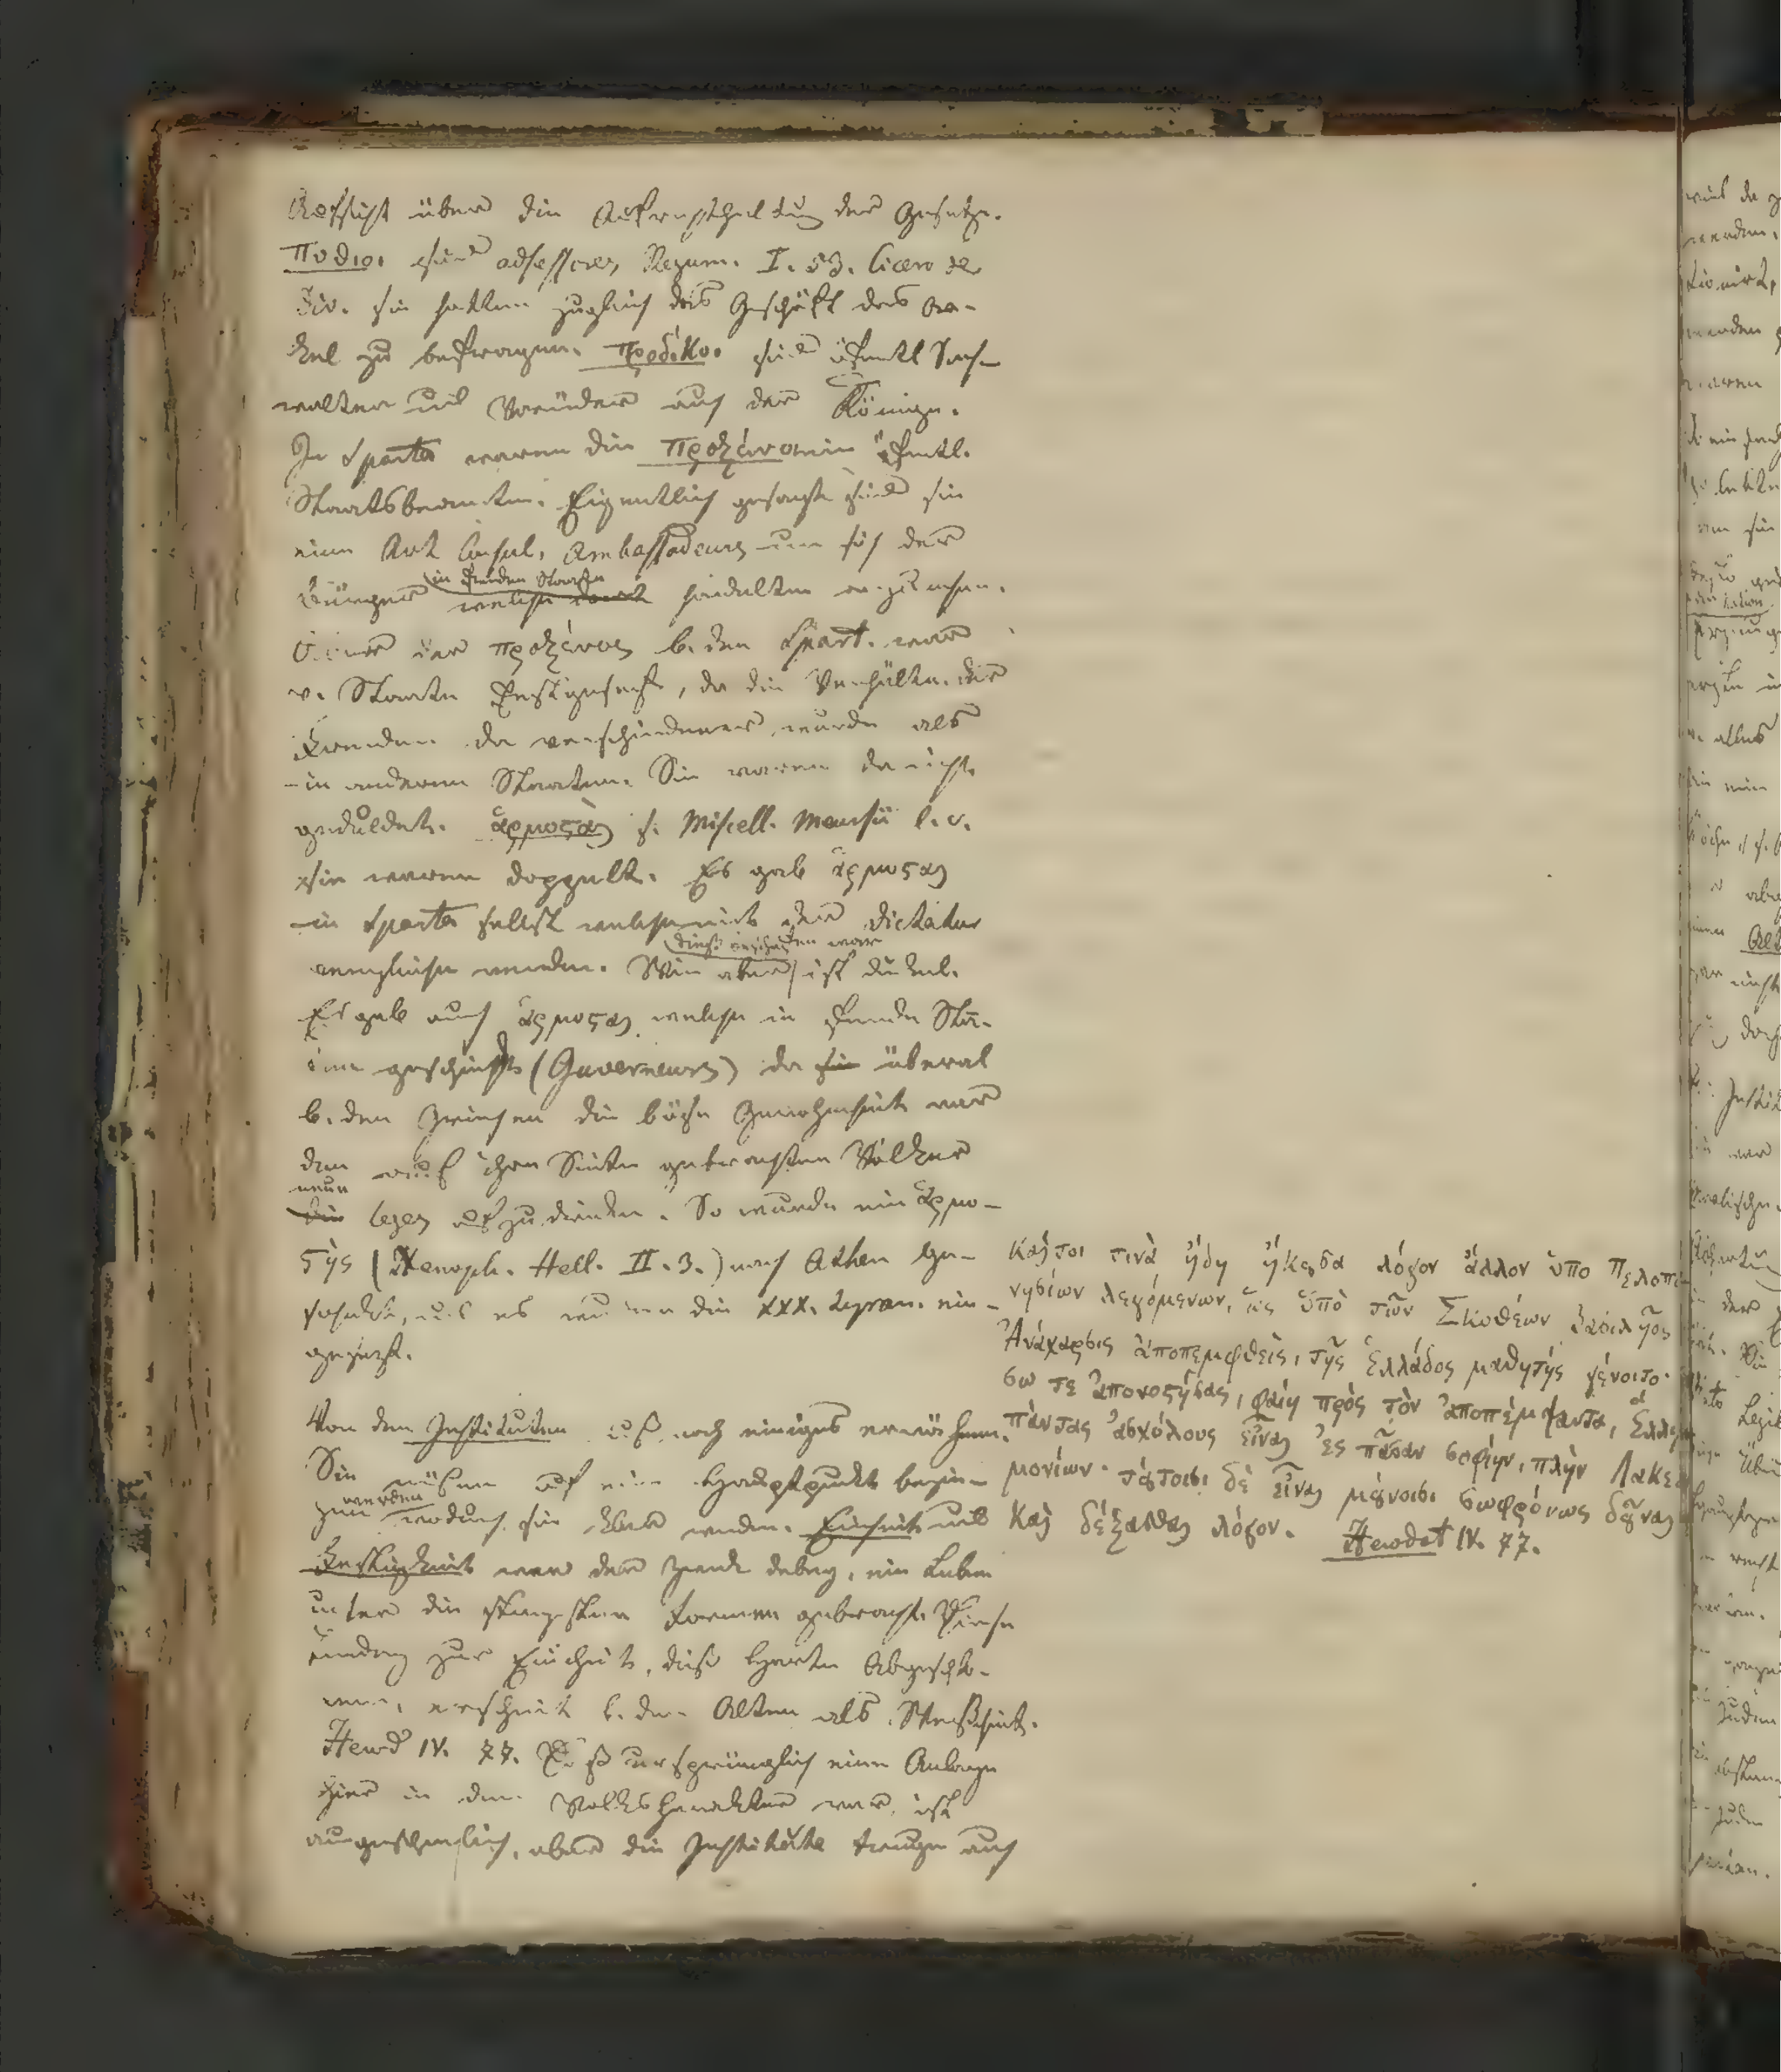 Aufsicht über die Aufrechthaltung der Gesetze.
Πυθιοι sind adsessores Regum. I. 53. Cicero de
Div. sie hatten zugleich das Geschäft das Ora-
kel zu befragen. Προδικοι sind öfentl Sach-
walter und Vormünder auch der Könige.
In Sparta waren die Προξένοι ein öfentl.
Staatsbeamten. Eigentlich gesagt sind sie
eine Art Consul, Ambassadeurs um sich der
Bürger welche in fremden Staaten handelten anzunehmen.
der προξένος b. den Spart. war
v. Staate festgesetzt, da die Verhältn. der
Fremden da verschiedener wurde als
in anderen Staaten. Sie waren da nicht
geduldet. ἁρμοϛαὶ s. Miscell. Meursii l. c.
sie waren doppelt. Es gab ἁρμοϛαι
in Sparta selbst welche mit der Dictatur
verglichen werden. Wie aber dies beschaffen war ist dunkel.
Es gab auch ἁρμοϛαι welche in fremde Sta-
geschickt (Guverneurs) da sie überal
b. den Griechen die böse Gewohnheit war
den auf ihre Seite gebrachten Völker
neue die leges aufzudringen. So wurde ein ἁρμο-
ϛὴς (Xenoph. Hell. II. 3.) nach Athen ge-
schickt, und es wurden die XXX. Tyran. ein-
gesezt.
Von den Instituten muß noch einiges erwähnen.
Sie müssen auf einen Hauptpunkt bezogen
werden wodurch sie klar werden. Einheit und
Festigkeit war der Zweck dabey, ein Leben
unter die strengsten Formen gebracht. Diese
zur Einheit, dieß harte Abgeschlo-
erscheint b. den Alten als Weißheit.
Herod IV. 77. Daß ursprünglich eine Anlage
hier in dem Volkscharakter war, ist
augenscheinlich, aber die Institute trugen auch
Καίτοι τινὰ ἤδη ἤκουσα λόγον ἄλλον ὑπο Πελοπο
νησίων λεγόμενων, ὡς ὑπὸ τῶν Σκυθέων βασιλῆος
Ἀνάχαρσις ἀποπεμφθεὶς, τῆς Ἑλλάδος μαθητής γένοιτο·
σω τε ἀπονοϛήσας, φαίη πρὸς τὸν ἀποπέμψαντα, Ἑλλη
πάντας ἀσχόλους εἶναι ἐς πᾶσαν σοφίην, πλὴν Λακεδ
μονίων· τούτοισι δὲ εἶναι μούνοισι σωφρόνως δοῦναι
καὶ δέξασθαι λόγον. Herodot IV. 77.